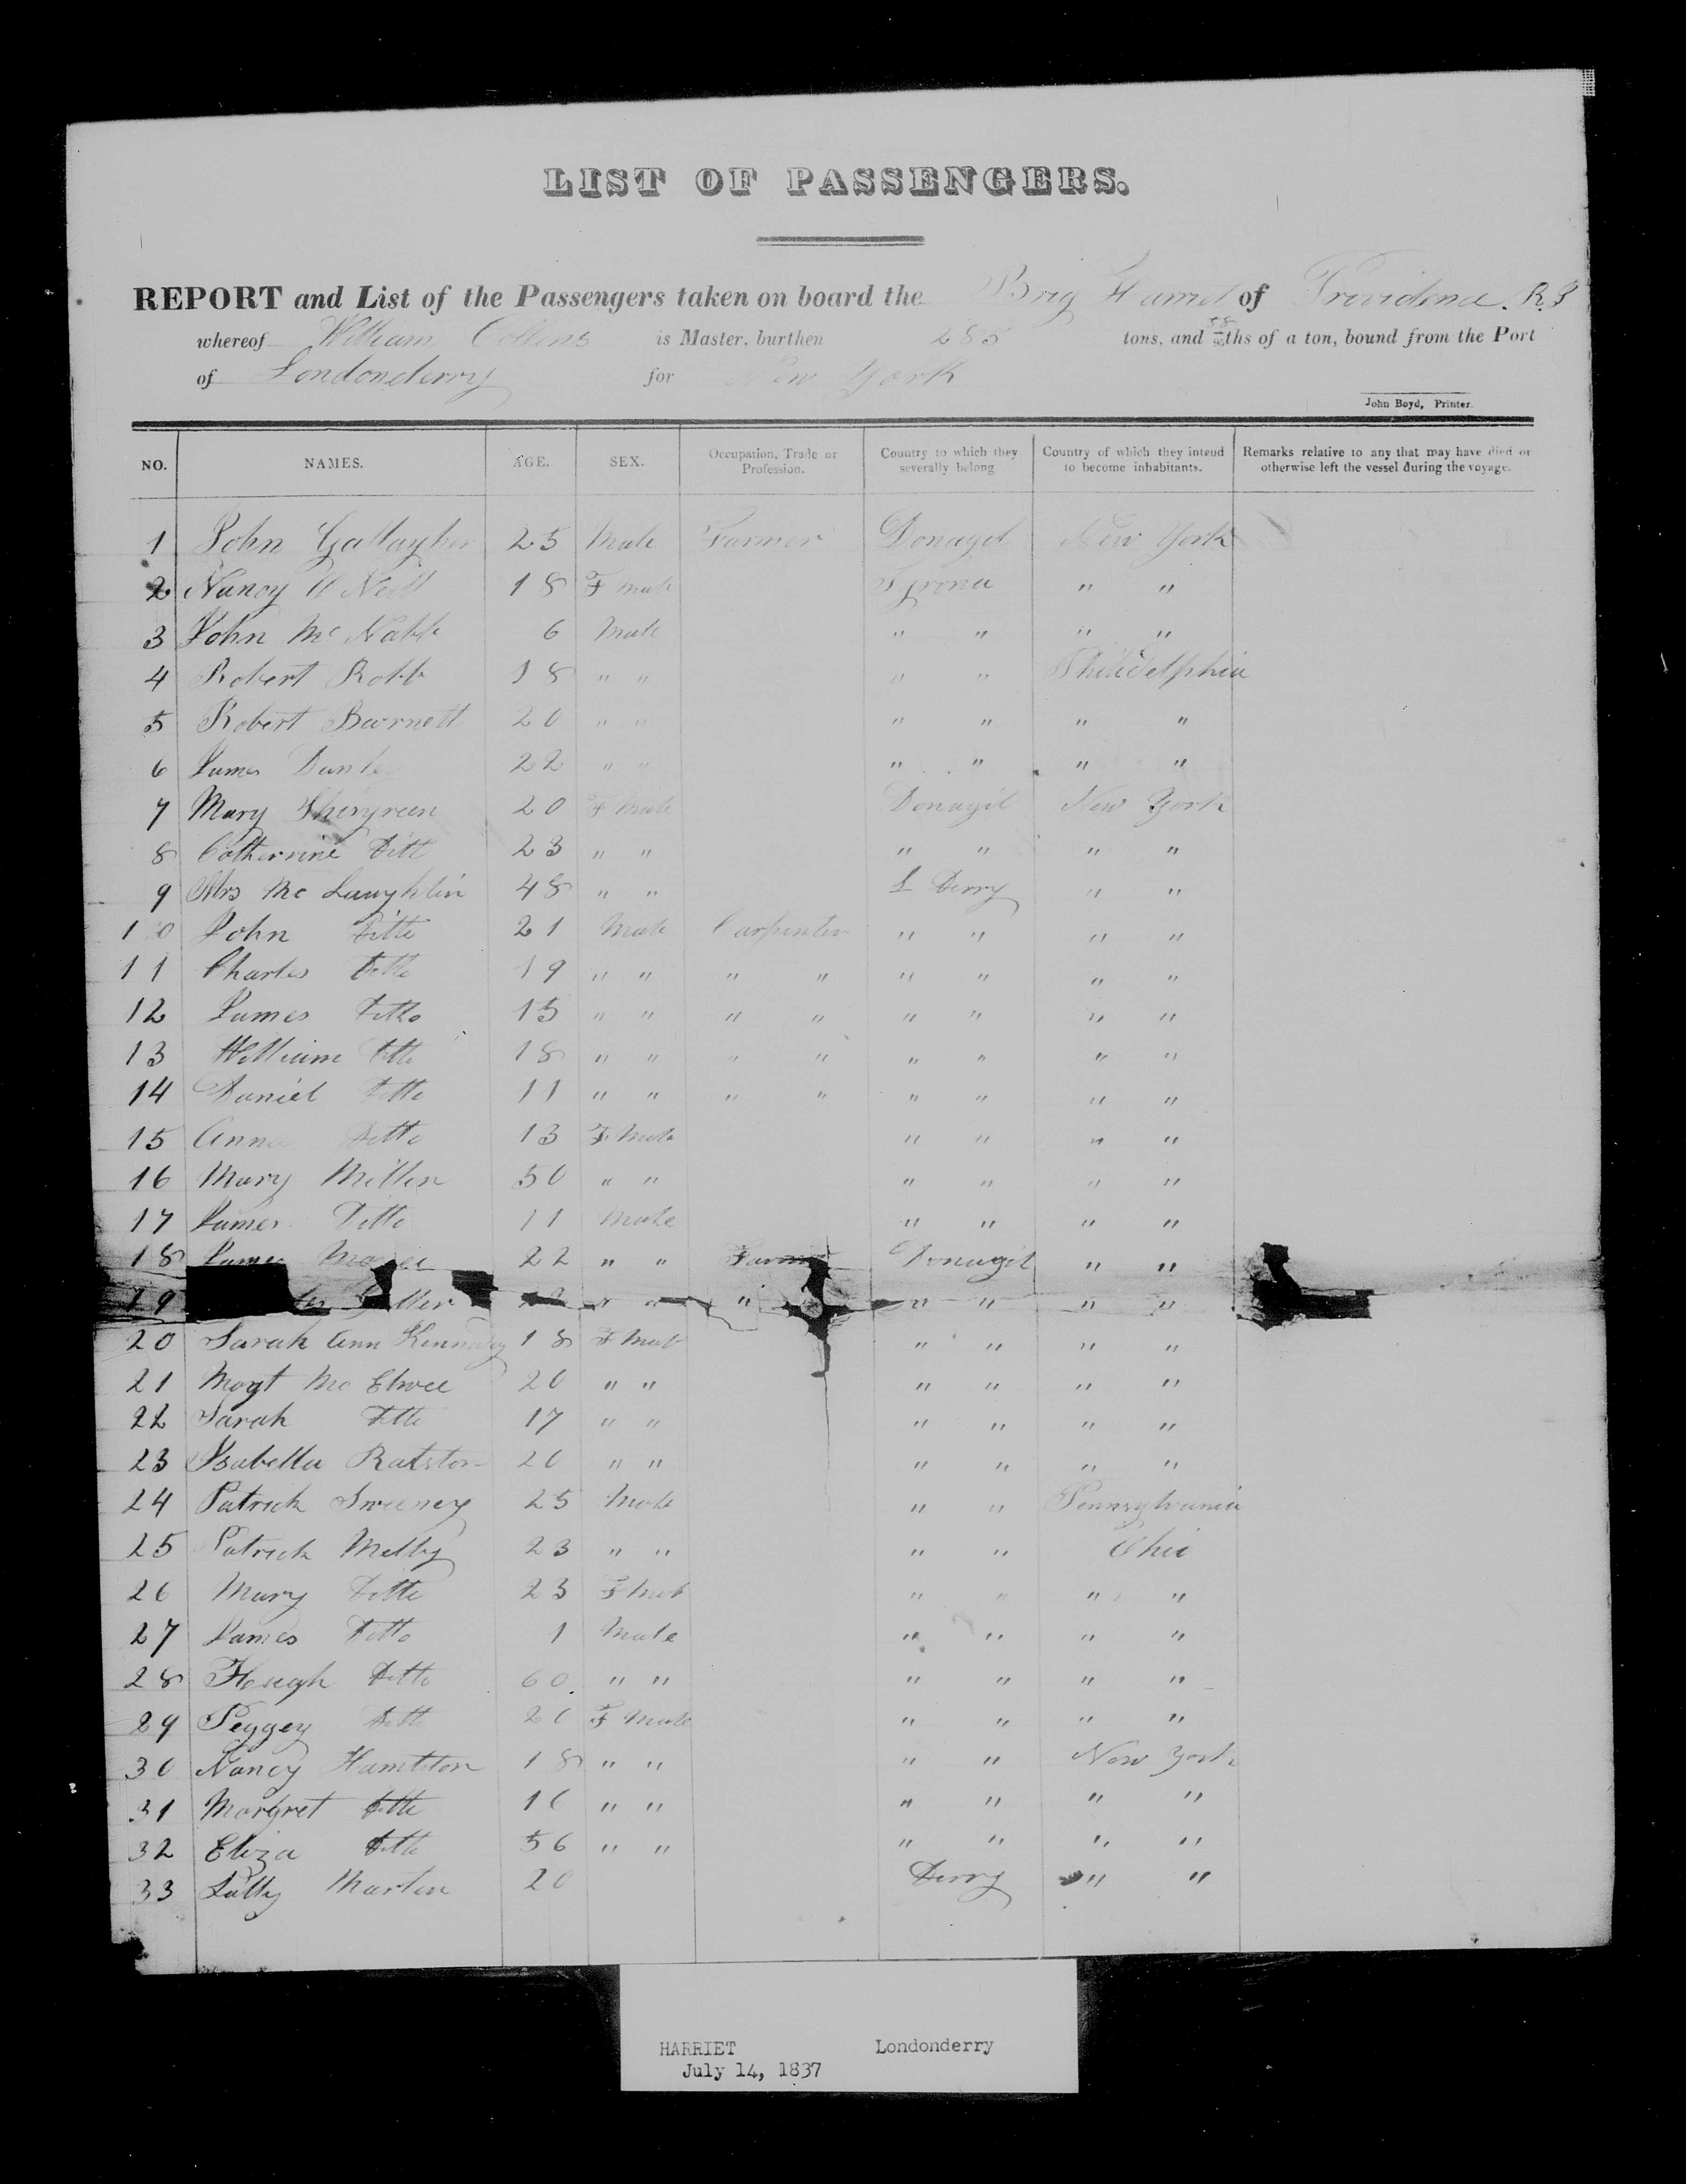 LIST OF PASSENGERS.
REPORT and List of the Passengers taken on board the Brig Harriet of Providence. R. I
whereof William Collins is Master, burthen 285 tons, and 58/95ths of a ton, bound from the Port
of Londonderry for New York
John Boyd, Printer.
NO. NAMES. AGE. SEX. Occupation, Trade or Profession. Country to which they severally belong Country of which they intend to become inhabitants. Remarks relative to any that may have died or otherwise left the vessel during the voyage.
1 John Gallagher 25 Male Farmer Donagil New York
2 Nancy O Neill 18 F male Tyrona " "
3 John Mc Nabb 6 Male " " " "
4 Robert Robb 18 " " " " Philidelphia
5 Robert Barnett 20 " " " " " "
6 James 22 " " " " " "
7 Mary 20 F Male Donagil New York
8 Catherrine Ditt 23 " " " " " "
9 Mrs Mc Laughlin 48 " " L Derry " "
10 John Ditto 21 Male Carpenter " " " "
11 Charles Ditto 19 " " " " " " " "
12 James Ditto 15 " " " " " " " "
13 William Ditto 18 " " " " " " " "
14 Daniel Ditto 11 " " " " " " " "
15 Anna Ditto 13 F Male " " " "
16 Mary Miller 50 " " " " " "
17 James Ditto 11 Male " " " "
18 James 22 " " Farmer Donagil " "
19 " " " " " " "
20 Sarah Ann Kennedy 18 F Male " " " "
21 Margt Mc Elwee 20 " " " " " "
22 Sarah Ditto 17 " " " " " "
23 Isabella Ralston 20 " " " " " "
24 Patrick Sweeney 25 Male " " Pennsylvania
25 Patrick Melly 23 " " " " Ohio
26 Mary Ditto 23 F Male " " " "
27 James Ditto 1 Male " " " "
28 Hough Ditto 60 " " " " " "
29 Peggey Ditto 20 F Male " " " "
30 Nancy Hamilton 18 " " " " New York
31 Margret Ditto 16 " " " " " "
32 Eliza Ditto 56 " " " " " "
33 Martin 20 Derry " "
HARRIET Londonderry
July 14, 1837